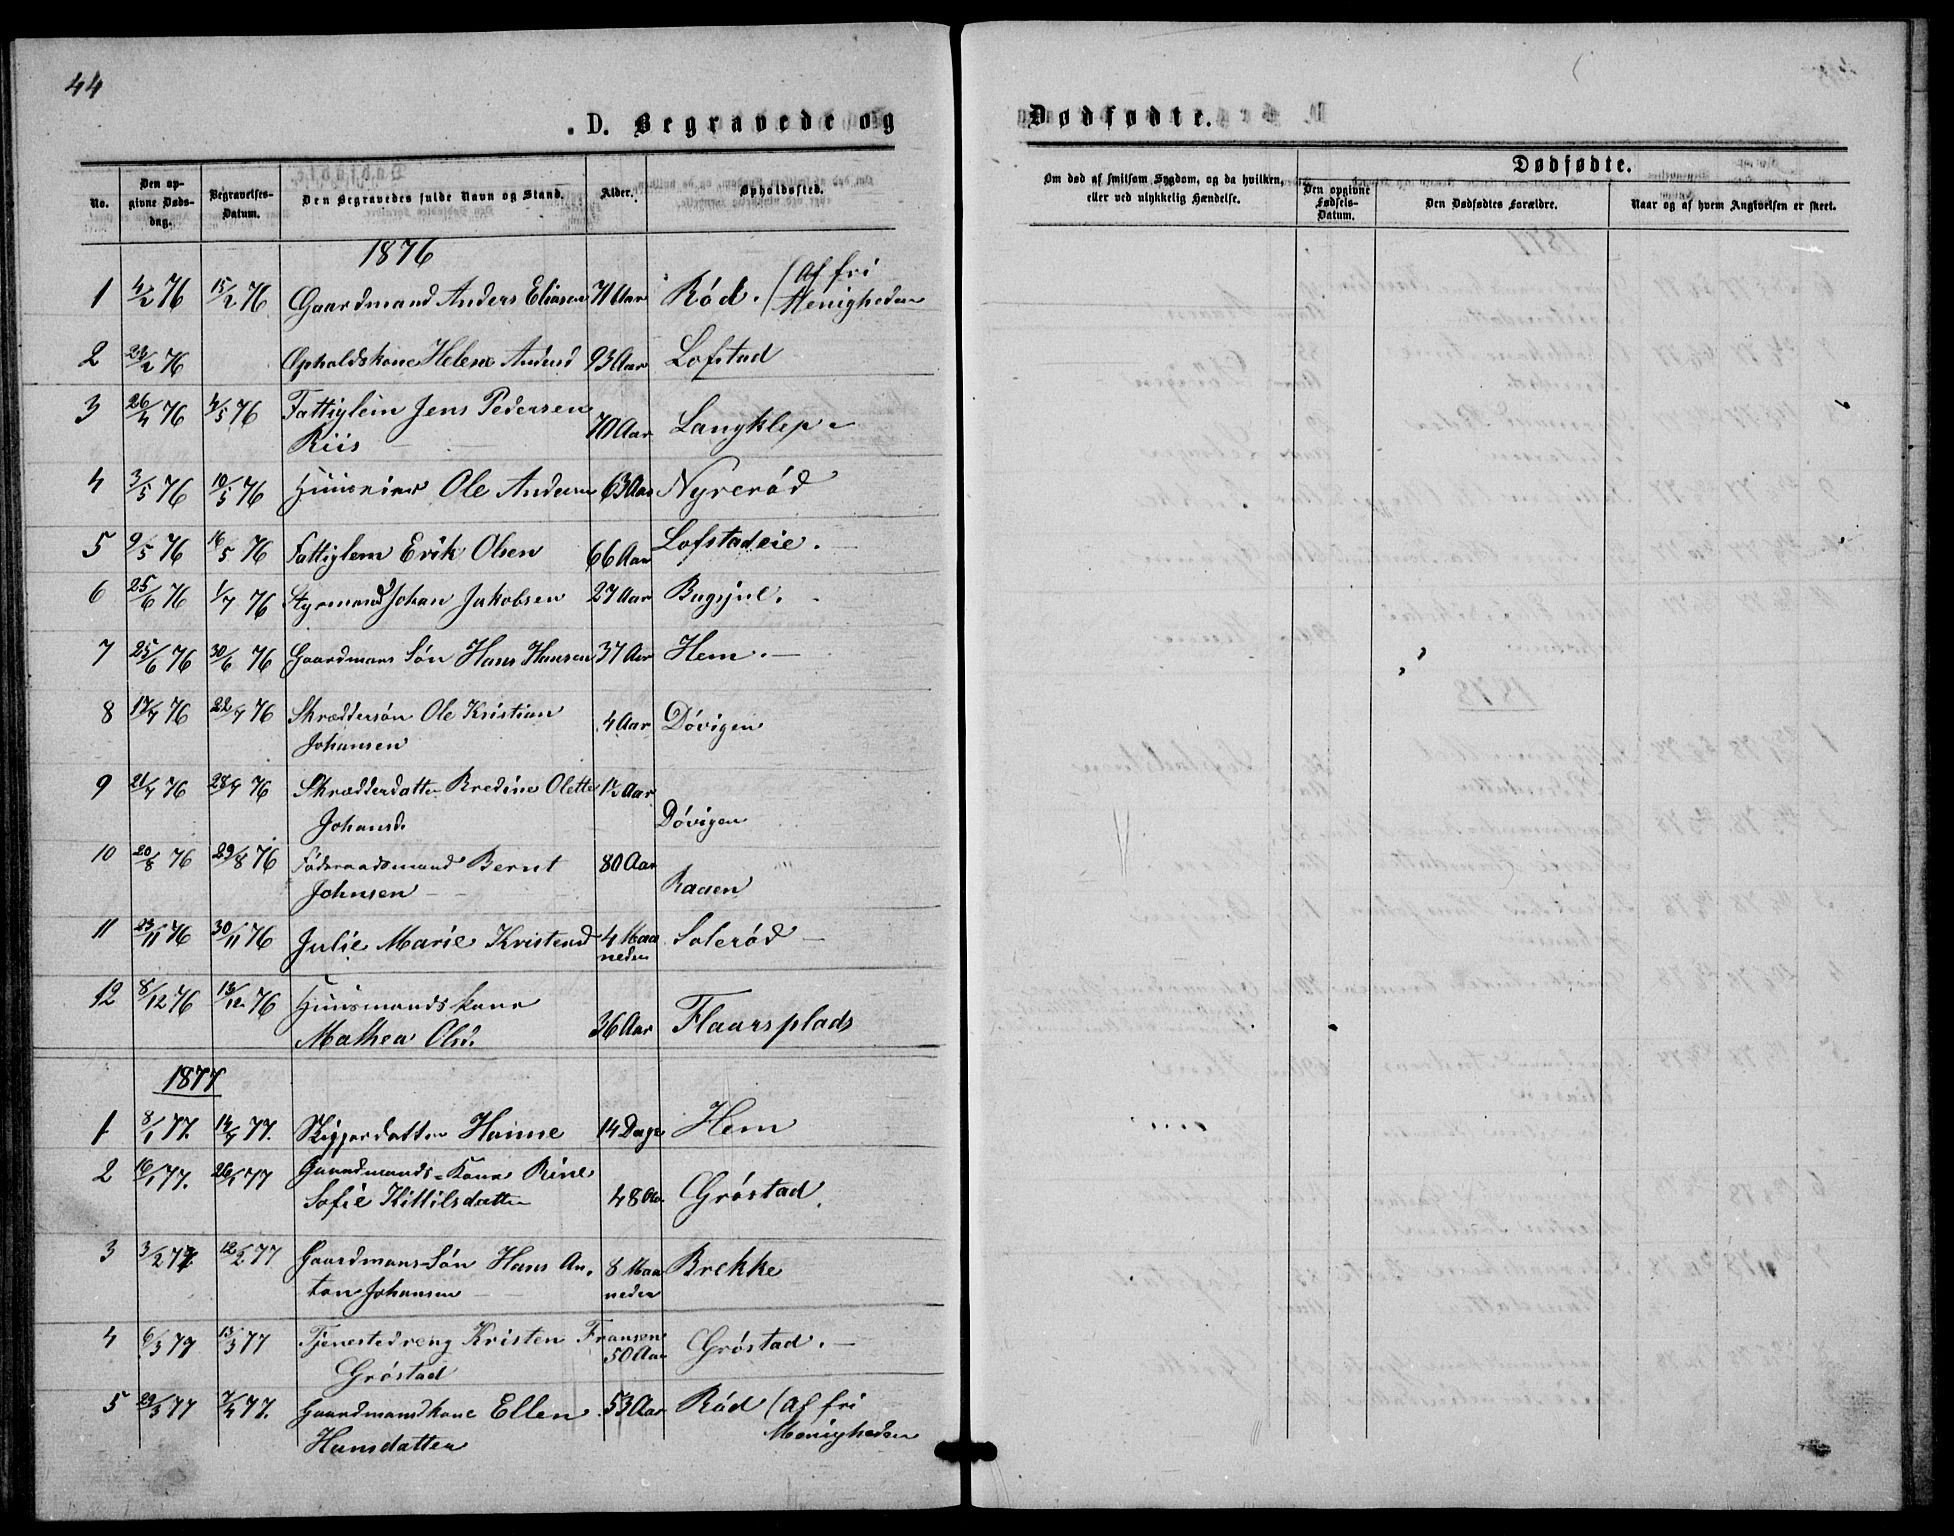 44
D. Begravede og
Dødfødte.
No.
Den op-
givne Døds-
dag.
Begravelses-
Datum.
Den Begravedes fulde Navn og Stand.
Alder.
Opholdssted.
Om død af smitsom Sygdom, og da hvilken,
eller ved ulykkelig Hændelse.
Dødfødte.
Den opgivne
Fødsels-
Datum.
Den Dødfødtes Forældre.
Naar og af hvem Angivelsen er skeet.
1876
1 4/2 76 15/2 76 Gaardmand Anders Eliasen 71 Aar Röd. (Af fri
Menigheden
2 23/2 76 Opholdskone Helene Andersd 93 Aar Lofstad
3 26/4 76 4/5 76 Fattiglem Jens Pedersen
Riis 70 Aar Langklep
4 3/5 76 10/5 76 Ole Andersen 63 Aar Nyreröd
5 9/5 76 16/5 76 Fattiglem Erik Olsen 66 Aar Lofstadeie.
6 25/6 76 1/7 76 Styrmand Johan Jakobsen 27 Aar
7 25/6 76 30/6 76 Gaardmans Sön Hans Hansen 37 Aar Hem.
8 17/7 76 22/7 76 Skræddersön Ole Kristian
Johansen 4 Aar Dövigen
9 21/7 76 28/7 76 Skrædderdatter Bredine Olette 1½ Aar
Johansd. Dövigen
10 20/8 76 29/8 76 Föderaadsmand Bernt 80 Aar
Johnsen Raaen
11 23/11 76 30/11 76 Julie Marie Kristensd 4 Maa
neder Soleröd
12 8/12 76 13/12 76 Huusmands kone
Mathea Olsd. 36 Aar Flaarsplads
1877
1 8/1 77. 14/1 77. Skipperdatter Hanne 14 Dage Hem
2 16/1 77. 26/1 77 Gaardmands-Kone Rine
Sofie Kittilsdatter 48 Aar Gröstad.
3 3/2 77. 12/2 77 Gaardmans-Sön Hans An-
ton Johansen 8 Maa
neder Brekke
4 6/3 77 13/3 77 Tjenestedreng Kristen Fransen
Gröstad 50 Aar Gröstad.
5 29/3 77 7/4 77. Gaardmandkone Ellen
Hansdatter 53 Aar Röd (Af fri
Menigheden